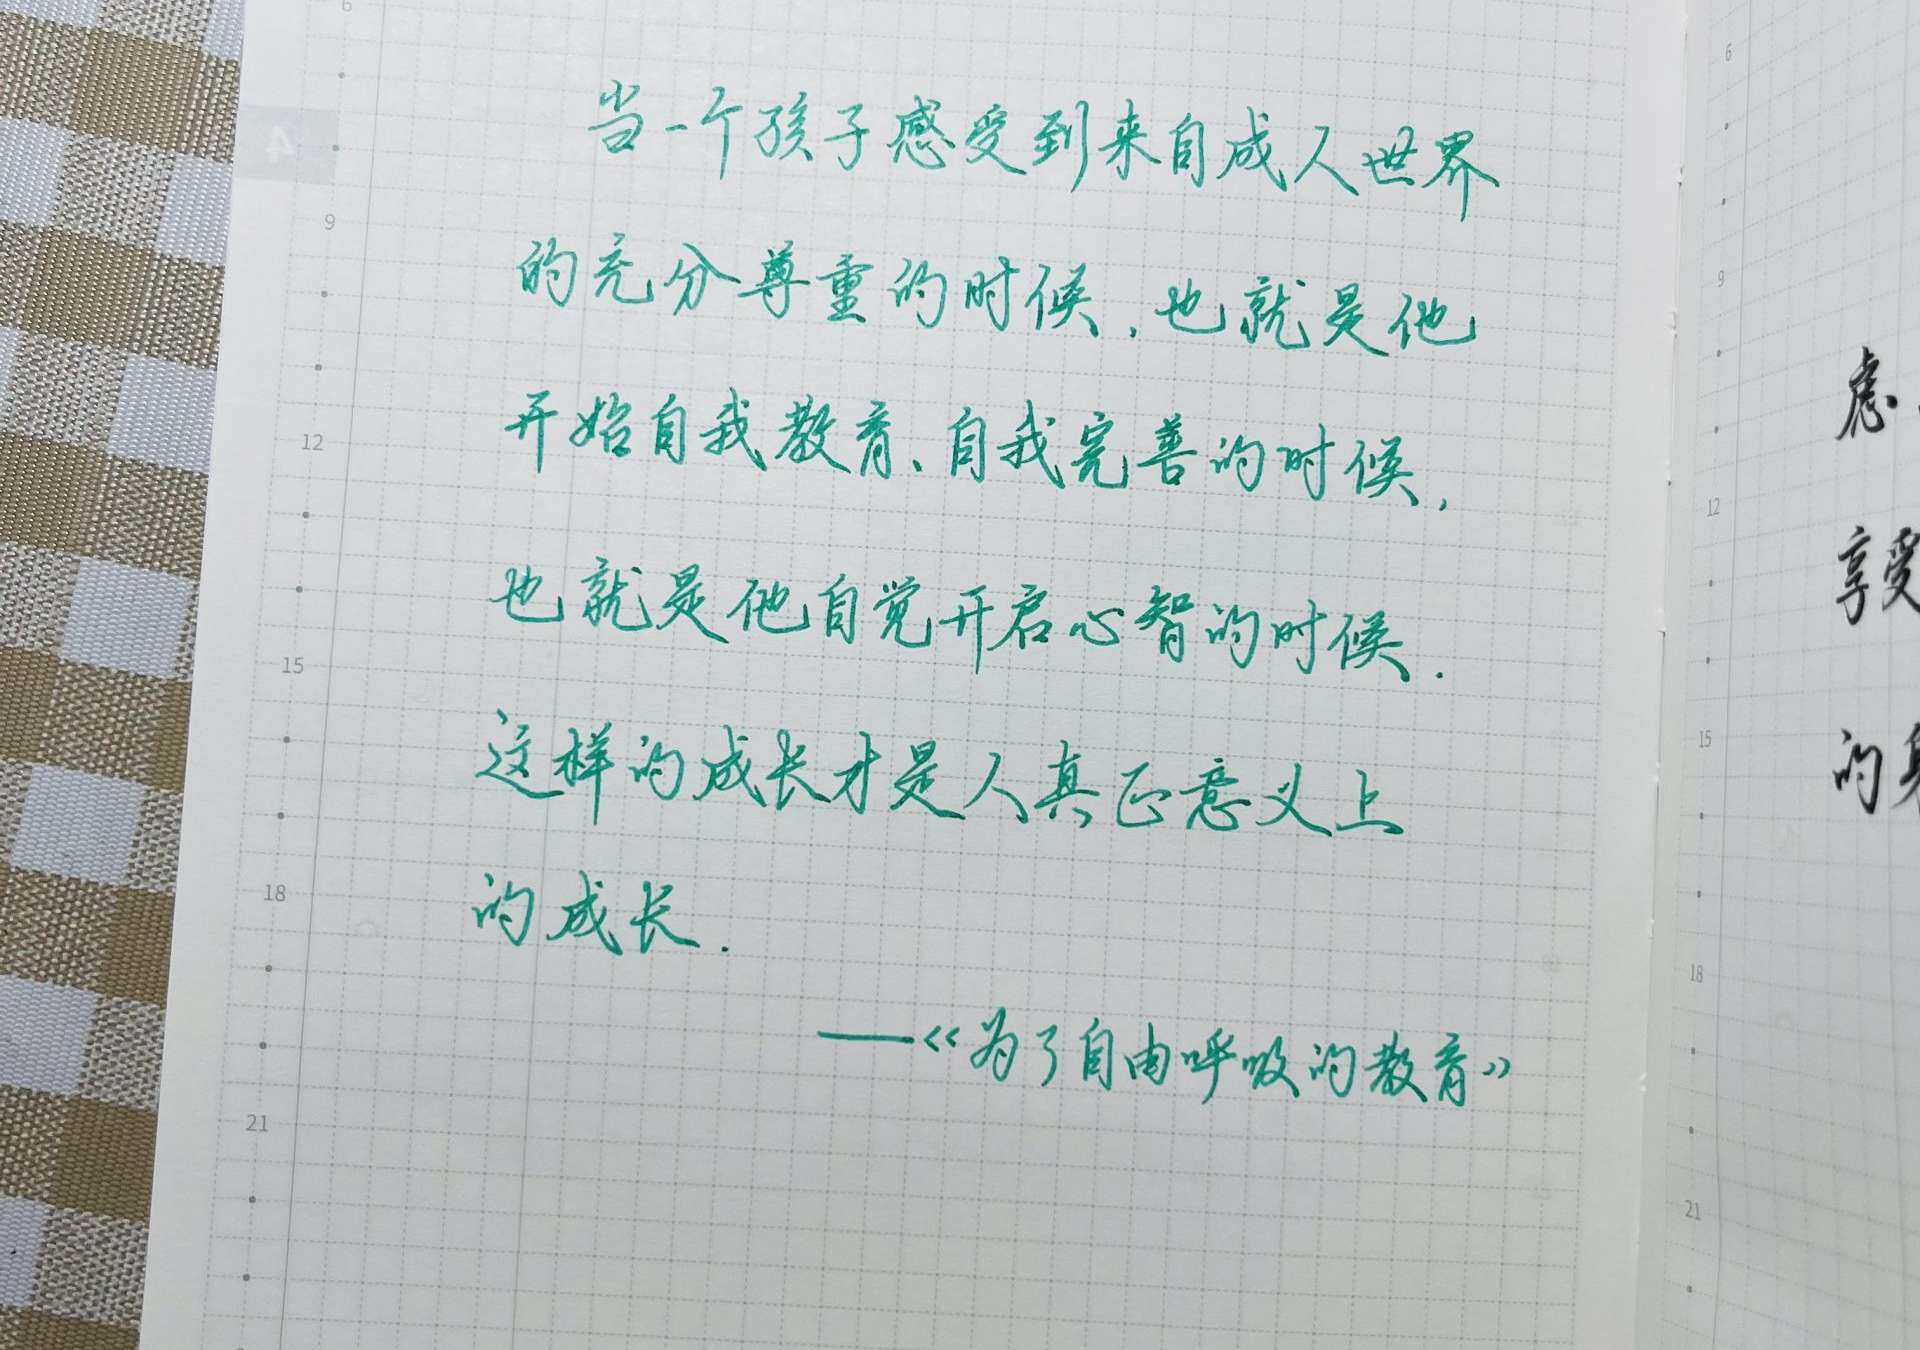 6
当一个孩子感受到来自成人世界
的充分尊重的时候,也就是他
开始自我教育、自我完善的时候,
也就是他自觉开启心智的时候.
这样的成长才是人真正意义上
的成长.
——《为了自由呼吸的教育》
4
9
12
15
18
21
6
9
虑
12
享受
15
的
18
21